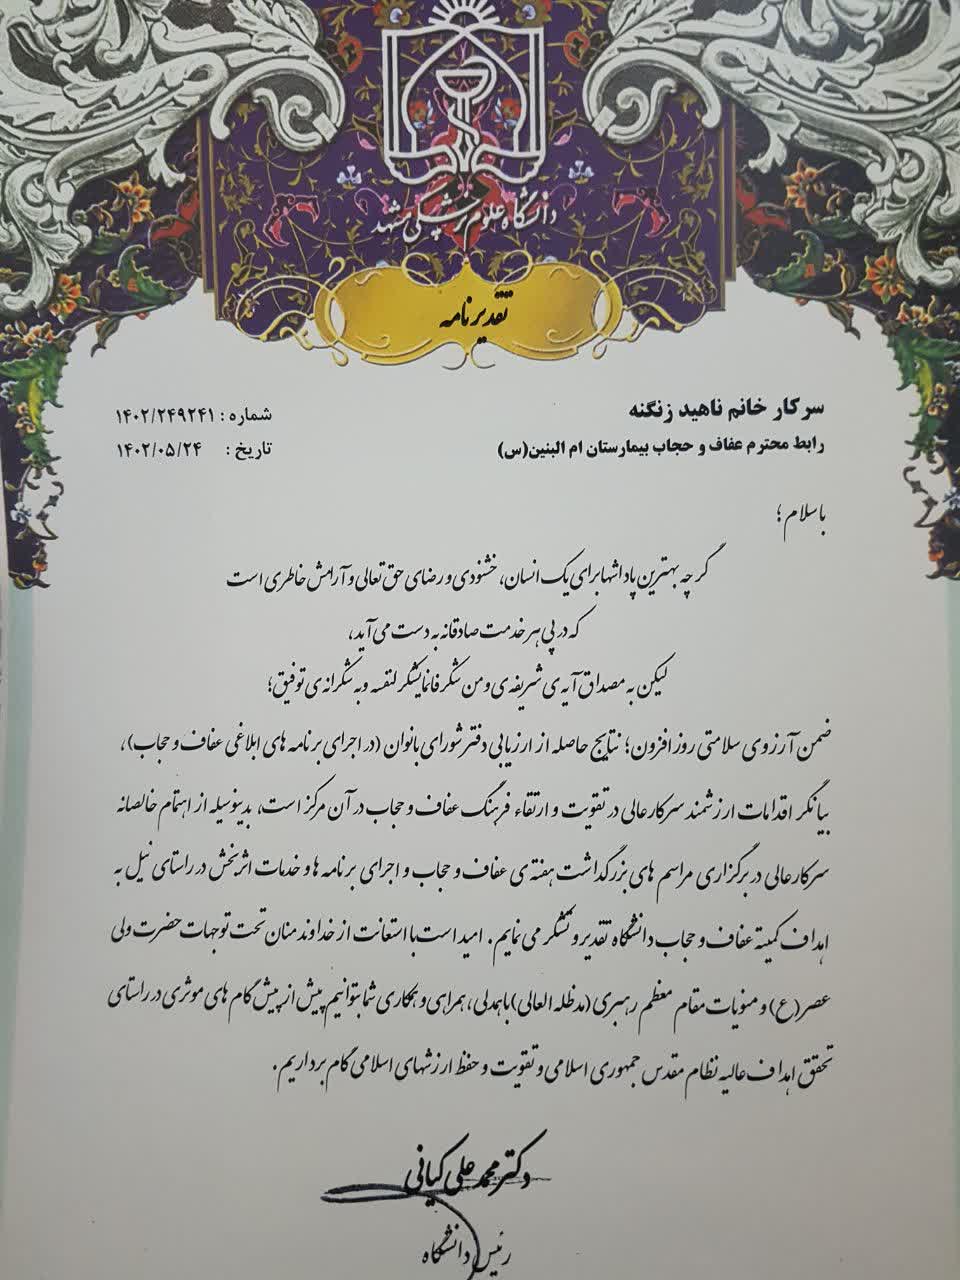 دانشگاه علوم پزشکی مشهد
تقدیرنامه
سرکار خانم ناهید زنگنه
شماره : ۱۴۰۲/۲۴۹۲۴۱
رابط محترم عفاف و حجاب بیمارستان ام البنین(س)
تاریخ : ۱۴۰۲/۰۵/۲۴
با سلام ؛
گر چه بهترین پاداشها برای یک انسان، خشنودی و رضای حق تعالی و آرامش خاطری است
که در پی هر خدمت صادقانه به دست می آید،
لیکن به مصداق آیه ی شریفه ی و من شکر فانما یشکر لنفسه و به شکرانه ی توفیق؛
ضمن آرزوی سلامتی روز افزون؛ نتایج حاصله از ارزیابی دفتر شورای بانوان (در اجرای برنامه های ابلاغی عفاف و حجاب)،
بیانگر اقدامات ارزشمند سرکارعالی در تقویت و ارتقاء فرهنگ عفاف و حجاب در آن مرکز است، بدینوسیله از اهتمام خالصانه
سرکارعالی در برگزاری مراسم های بزرگداشت هفته ی عفاف و حجاب و اجرای برنامه ها و خدمات اثربخش در راستای نیل به
اهداف کمیته عفاف و حجاب دانشگاه تقدیر و تشکر می نمایم. امید است با استعانت از خداوند منان تحت توجهات حضرت ولی
عصر(ع) و منویات مقام معظم رهبری (مدظله العالی) با همدلی، همراهی و همکاری شما بتوانیم پیش از پیش گام های موثری در راستای
تحقق اهداف عالیه نظام مقدس جمهوری اسلامی و تقویت و حفظ ارزشهای اسلامی گام برداریم.
دکتر محمد علی کیانی
رئیس دانشگاه